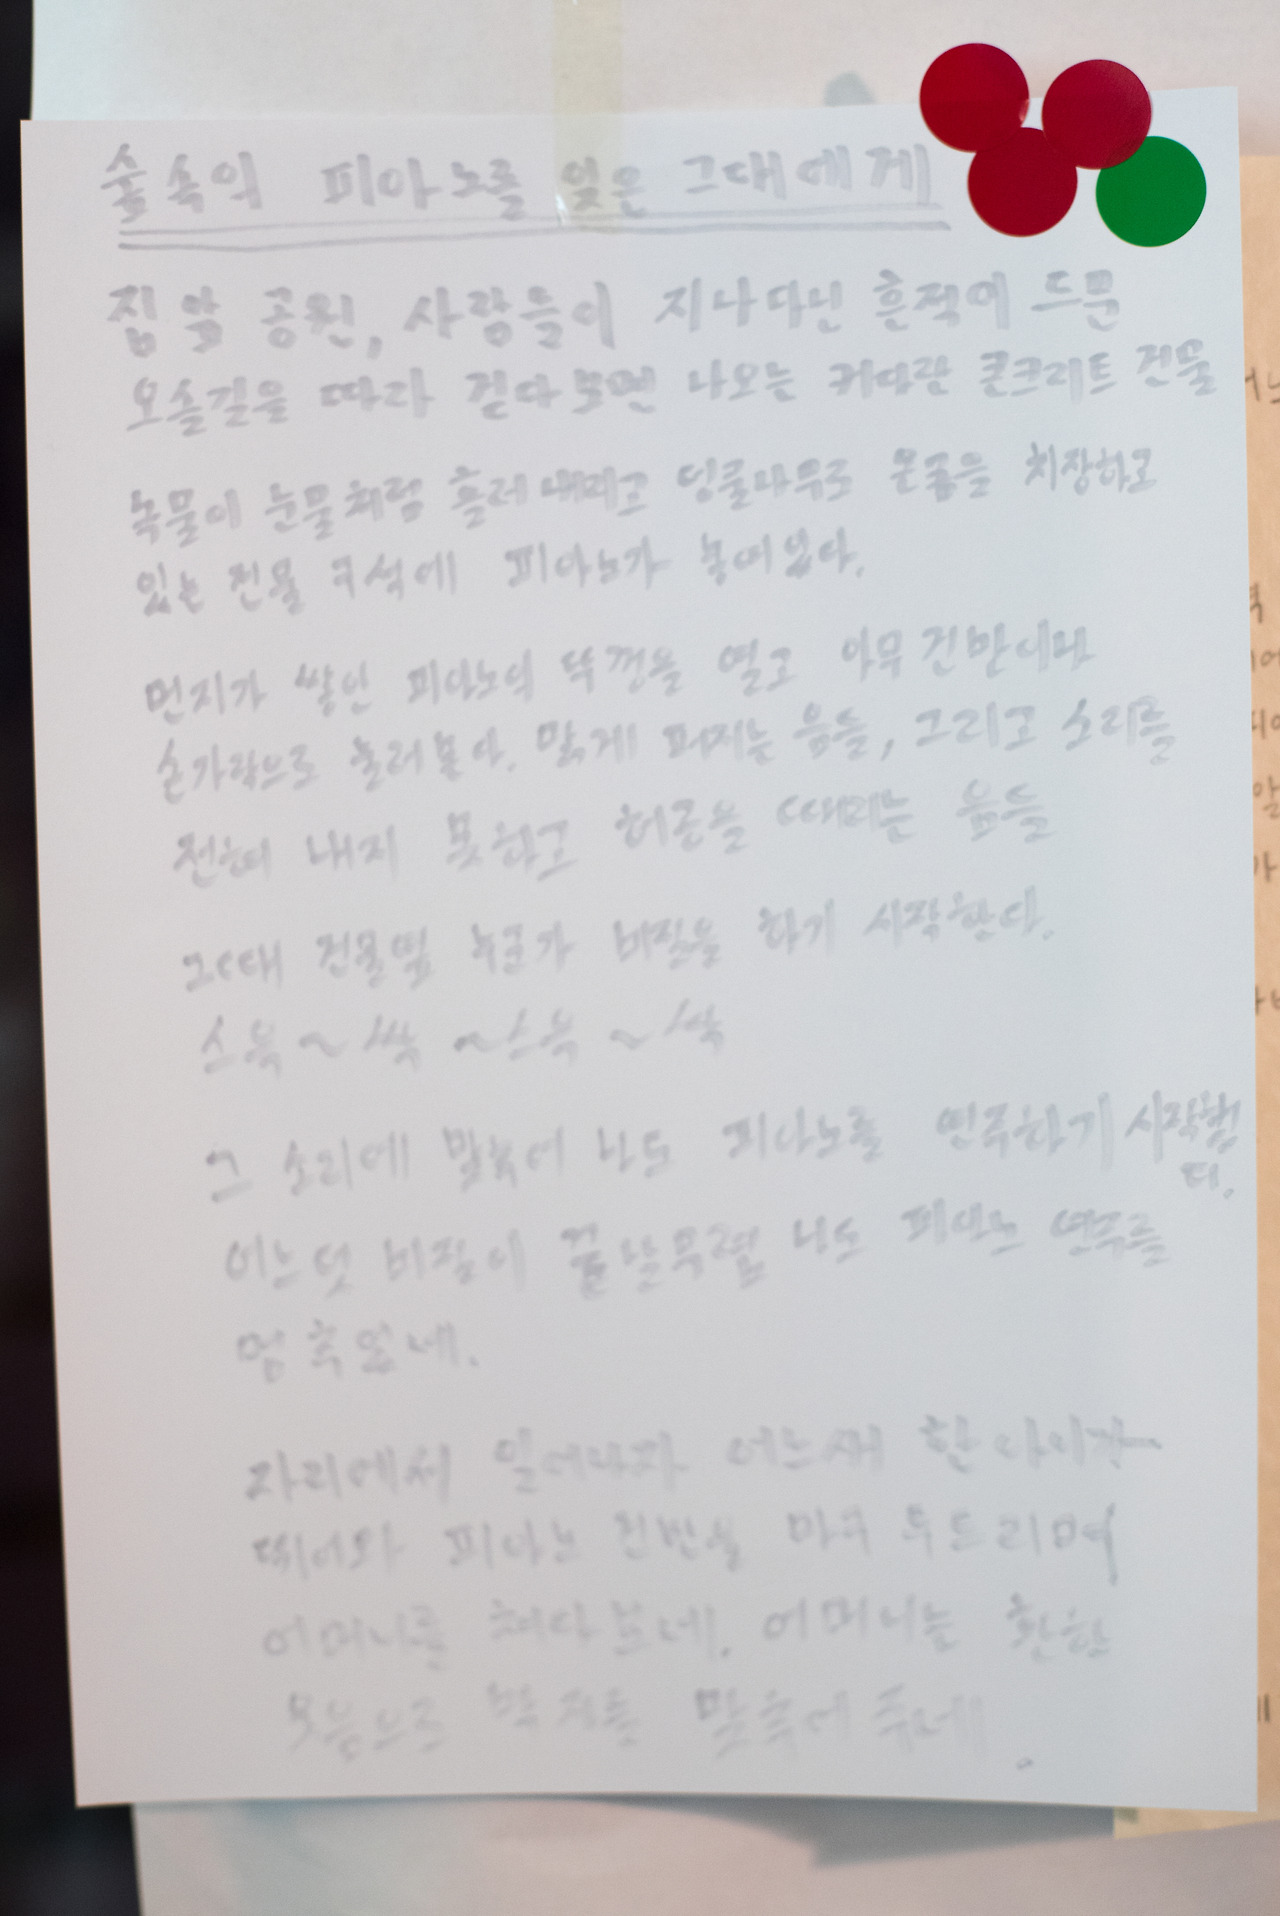 숲속의 피아노를 잊은 그대에게
집 앞 공원, 사람들이 지나다닌 흔적이 드문
오솔길을 따라 걷다보면 나오는 커다란 콘크리트 건물
녹물이 눈물처럼 흘러내리고 덩쿨나무로 온몸을 치장하고
있는 건물 구석에 피아노가 놓여있다.
먼지가 쌓인 피아노의 뚜껑을 열고 아무 건반이나
손가락으로 눌러본다. 맑게 퍼지는 음들, 그리고 소리를
전혀 내지 못하고 허공을 때리는 음들
그때 건물옆 누군가 비질을 하기 시작한다.
스윽~싹~스윽~싹
그 소리에 맞춰 나도 피아노를 연주하기 시작했
다.
어느덧 비질이 끝날무렵 나도 피아노 연주를
멈추었네.
자리에서 일어나자 어느새 한 아이가
뛰어와 피아노 건반을 마구 두드리며
어머니를 쳐다보네. 어머니는 환한
웃음으로 박자를 맞춰 주네